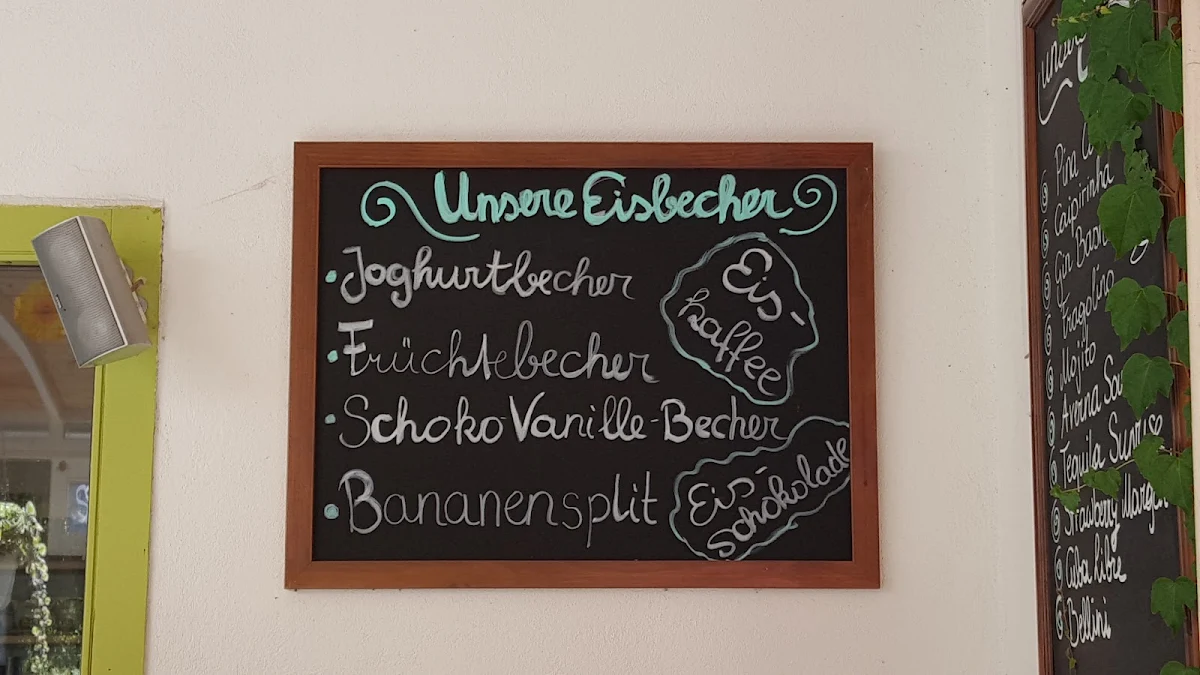 Unsere Eisbecher
Joghurtbecher
Früchtebecher
Schoko-Vanille-Becher
Bananensplit
Eis-
kaffee
Eis-
schokolade
unsere
Pina
Caipirinha
Gin
Fragolino
Mojito
Averna
Tequila Sunrise
Strawberry
Cuba libre
Bellini